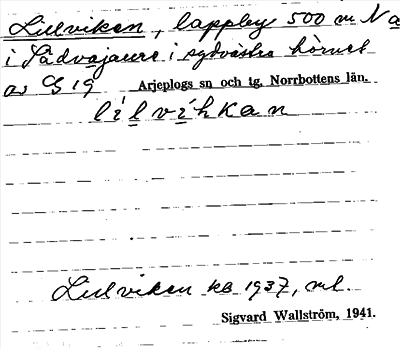 Lillviken, lappläg 500 m N a
i Sädvajaure i sydvästra hörnet
av G 19 Arjeplogs sn och tg, Norrbottens län.
lilvihkan
Lillviken ka 1937, ml.
Sigvard Wallström, 1941.